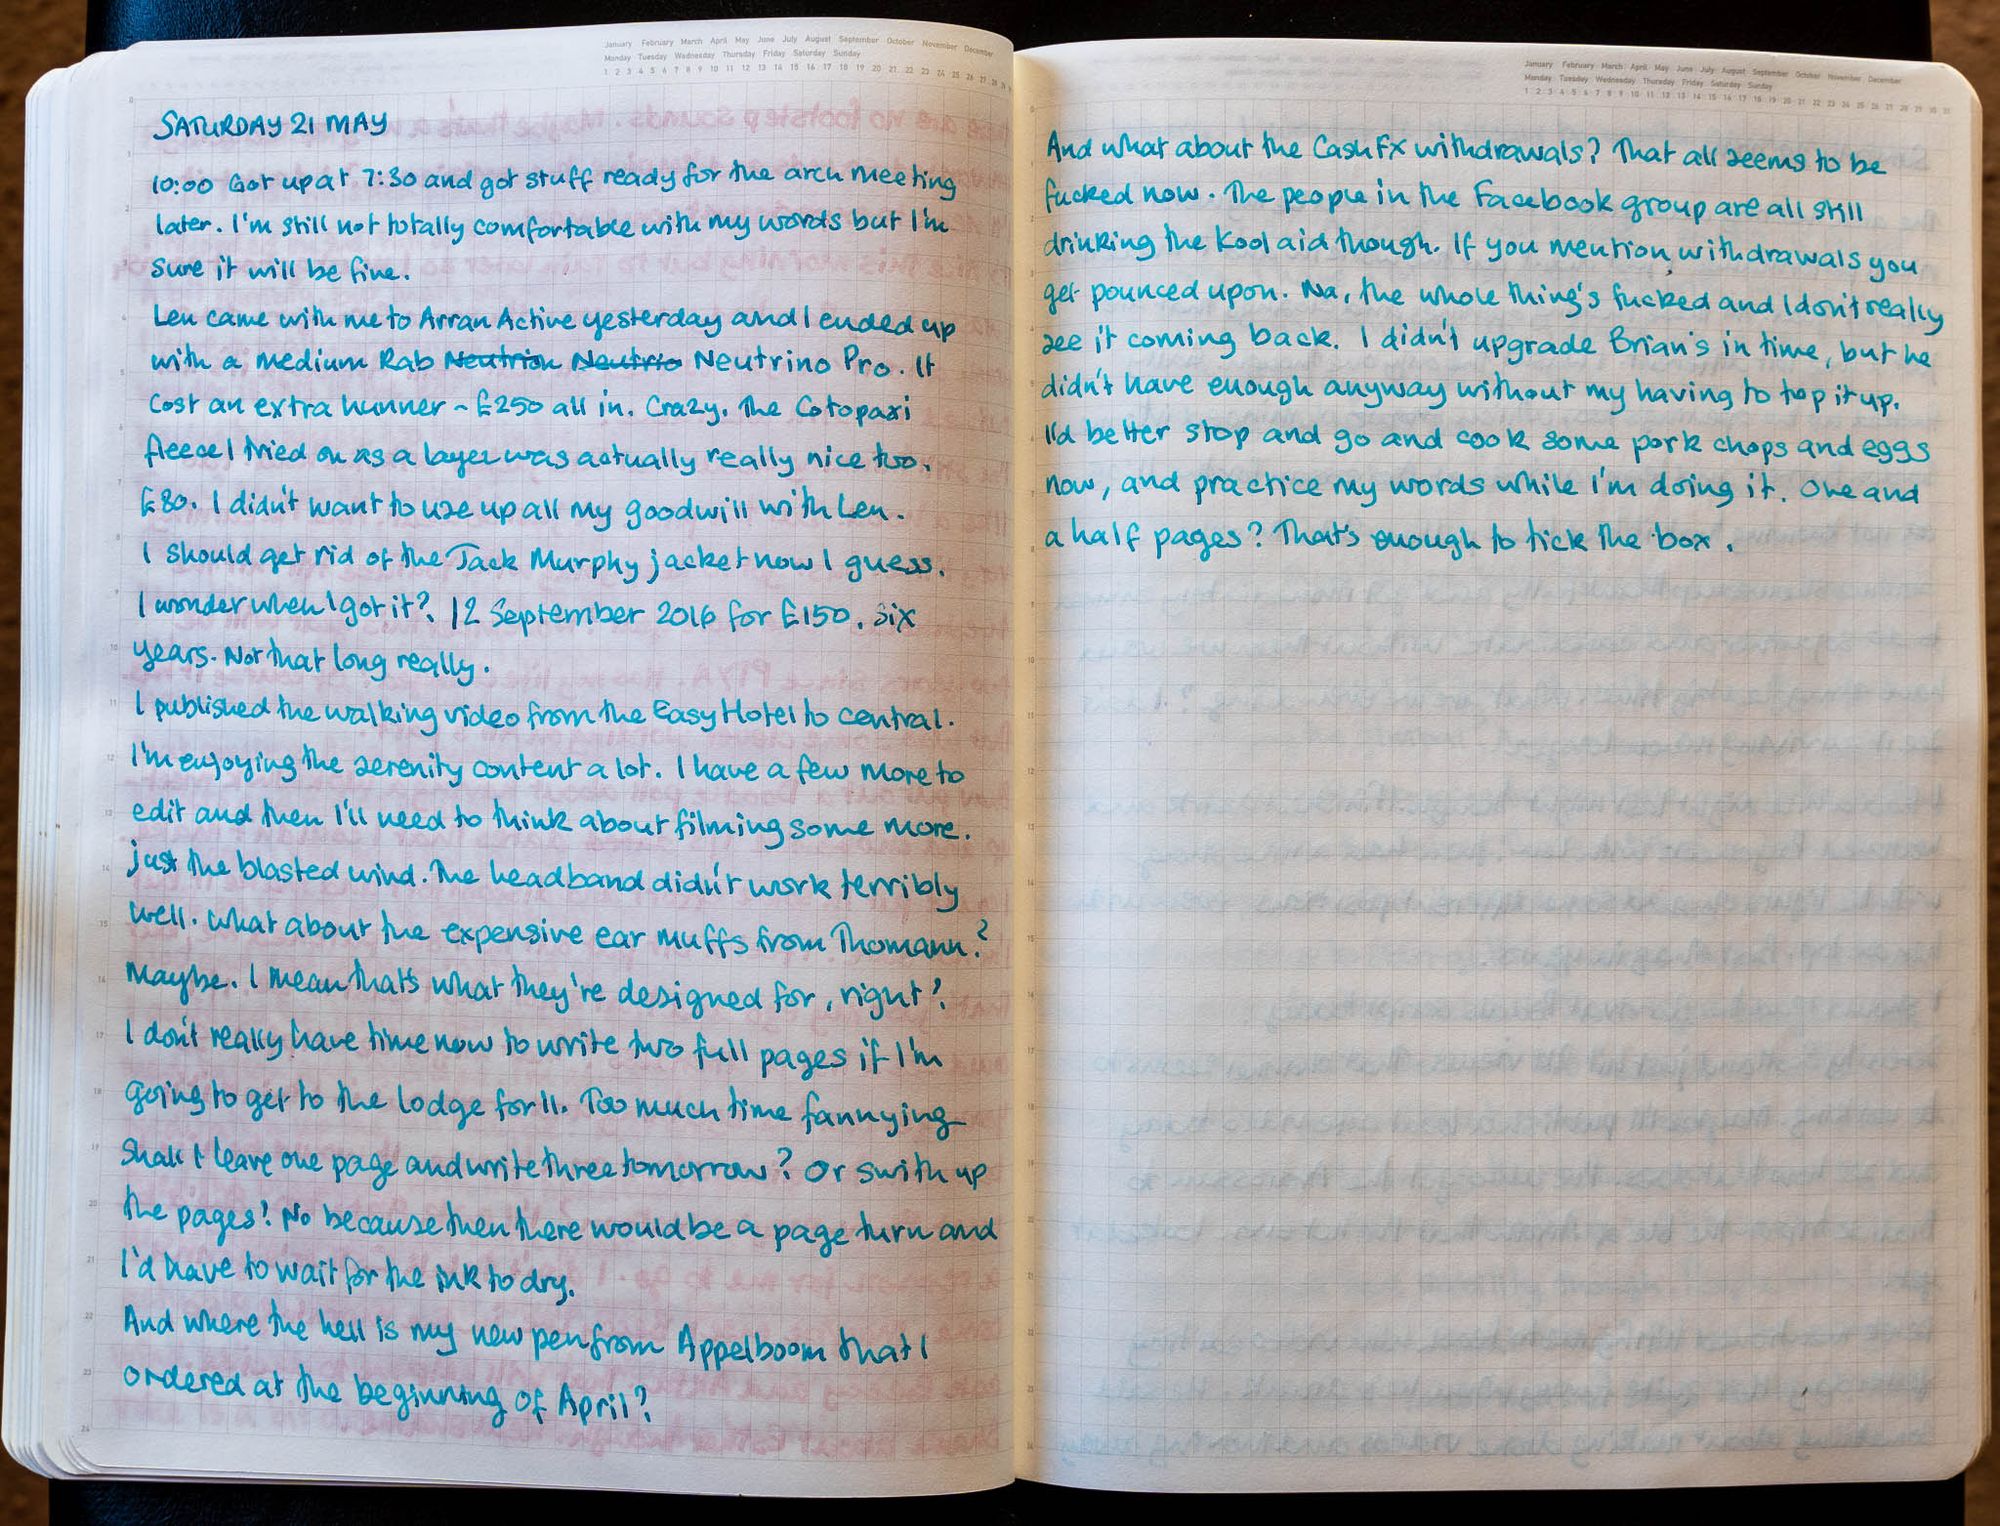 January February March April May June July August September October November December
Monday Tuesday Wednesday Thursday Friday Saturday Sunday
1 2 3 4 5 6 7 8 9 10 11 12 13 14 15 16 17 18 19 20 21 22 23 24 25 26 27 28 29 30 31
SATURDAY 21 MAY
10:00 Got up at 7:30 and got stuff ready for the arch meeting
later. I'm still not totally comfortable with my words but I'm
sure it will be fine.
Len came with me to Arran Active yesterday and I ended up
with a medium Rab Neutrion Neutrio Neutrino Pro. It
cost an extra hunner - £250 all in. Crazy. The Cotopaxi
fleece I tried on as a layer was actually really nice two.
£80. I didn't want to use up all my goodwill with Len.
I should get rid of the Jack Murphy jacket now I guess.
I wonder when I got it? 12 September 2016 for £150. Six
years. Not that long really.
I published the walking video from the Easy Hotel to central.
I'm enjoying the serenity content a lot. I have a few more to
edit and then I'll need to think about filming some more.
Just the blasted wind. The headband didn't work terribly
well. What about the expensive ear muffs from Thomann?
Maybe. I mean that's what they're designed for, right?
I don't really have time now to write two full pages if I'm
going to get to the lodge for 11. Too much time fannying
Shall I leave one page and write three tomorrow? Or swith up
the pages? No because then there would be a page turn and
I'd have to wait for the ink to dry.
And where the hell is my new pen from Appelboom that I
ordered at the beginning of April?
January February March April May June July August September October November December
Monday Tuesday Wednesday Thursday Friday Saturday Sunday
1 2 3 4 5 6 7 8 9 10 11 12 13 14 15 16 17 18 19 20 21 22 23 24 25 26 27 28 29 30 31
And what about the CashFX withdrawals? That all seems to be
fucked now. The people in the Facebook group are all still
drinking the Kool aid though. If you mention withdrawals you
get pounced upon. Na, the whole thing's fucked and I don't really
see it coming back. I didn't upgrade Brian's in time, but he
didn't have enough anyway without my having to top it up.
I'd better stop and go and cook some pork chops and eggs
now, and practice my words while I'm doing it. One and
a half pages? That's enough to tick the box.